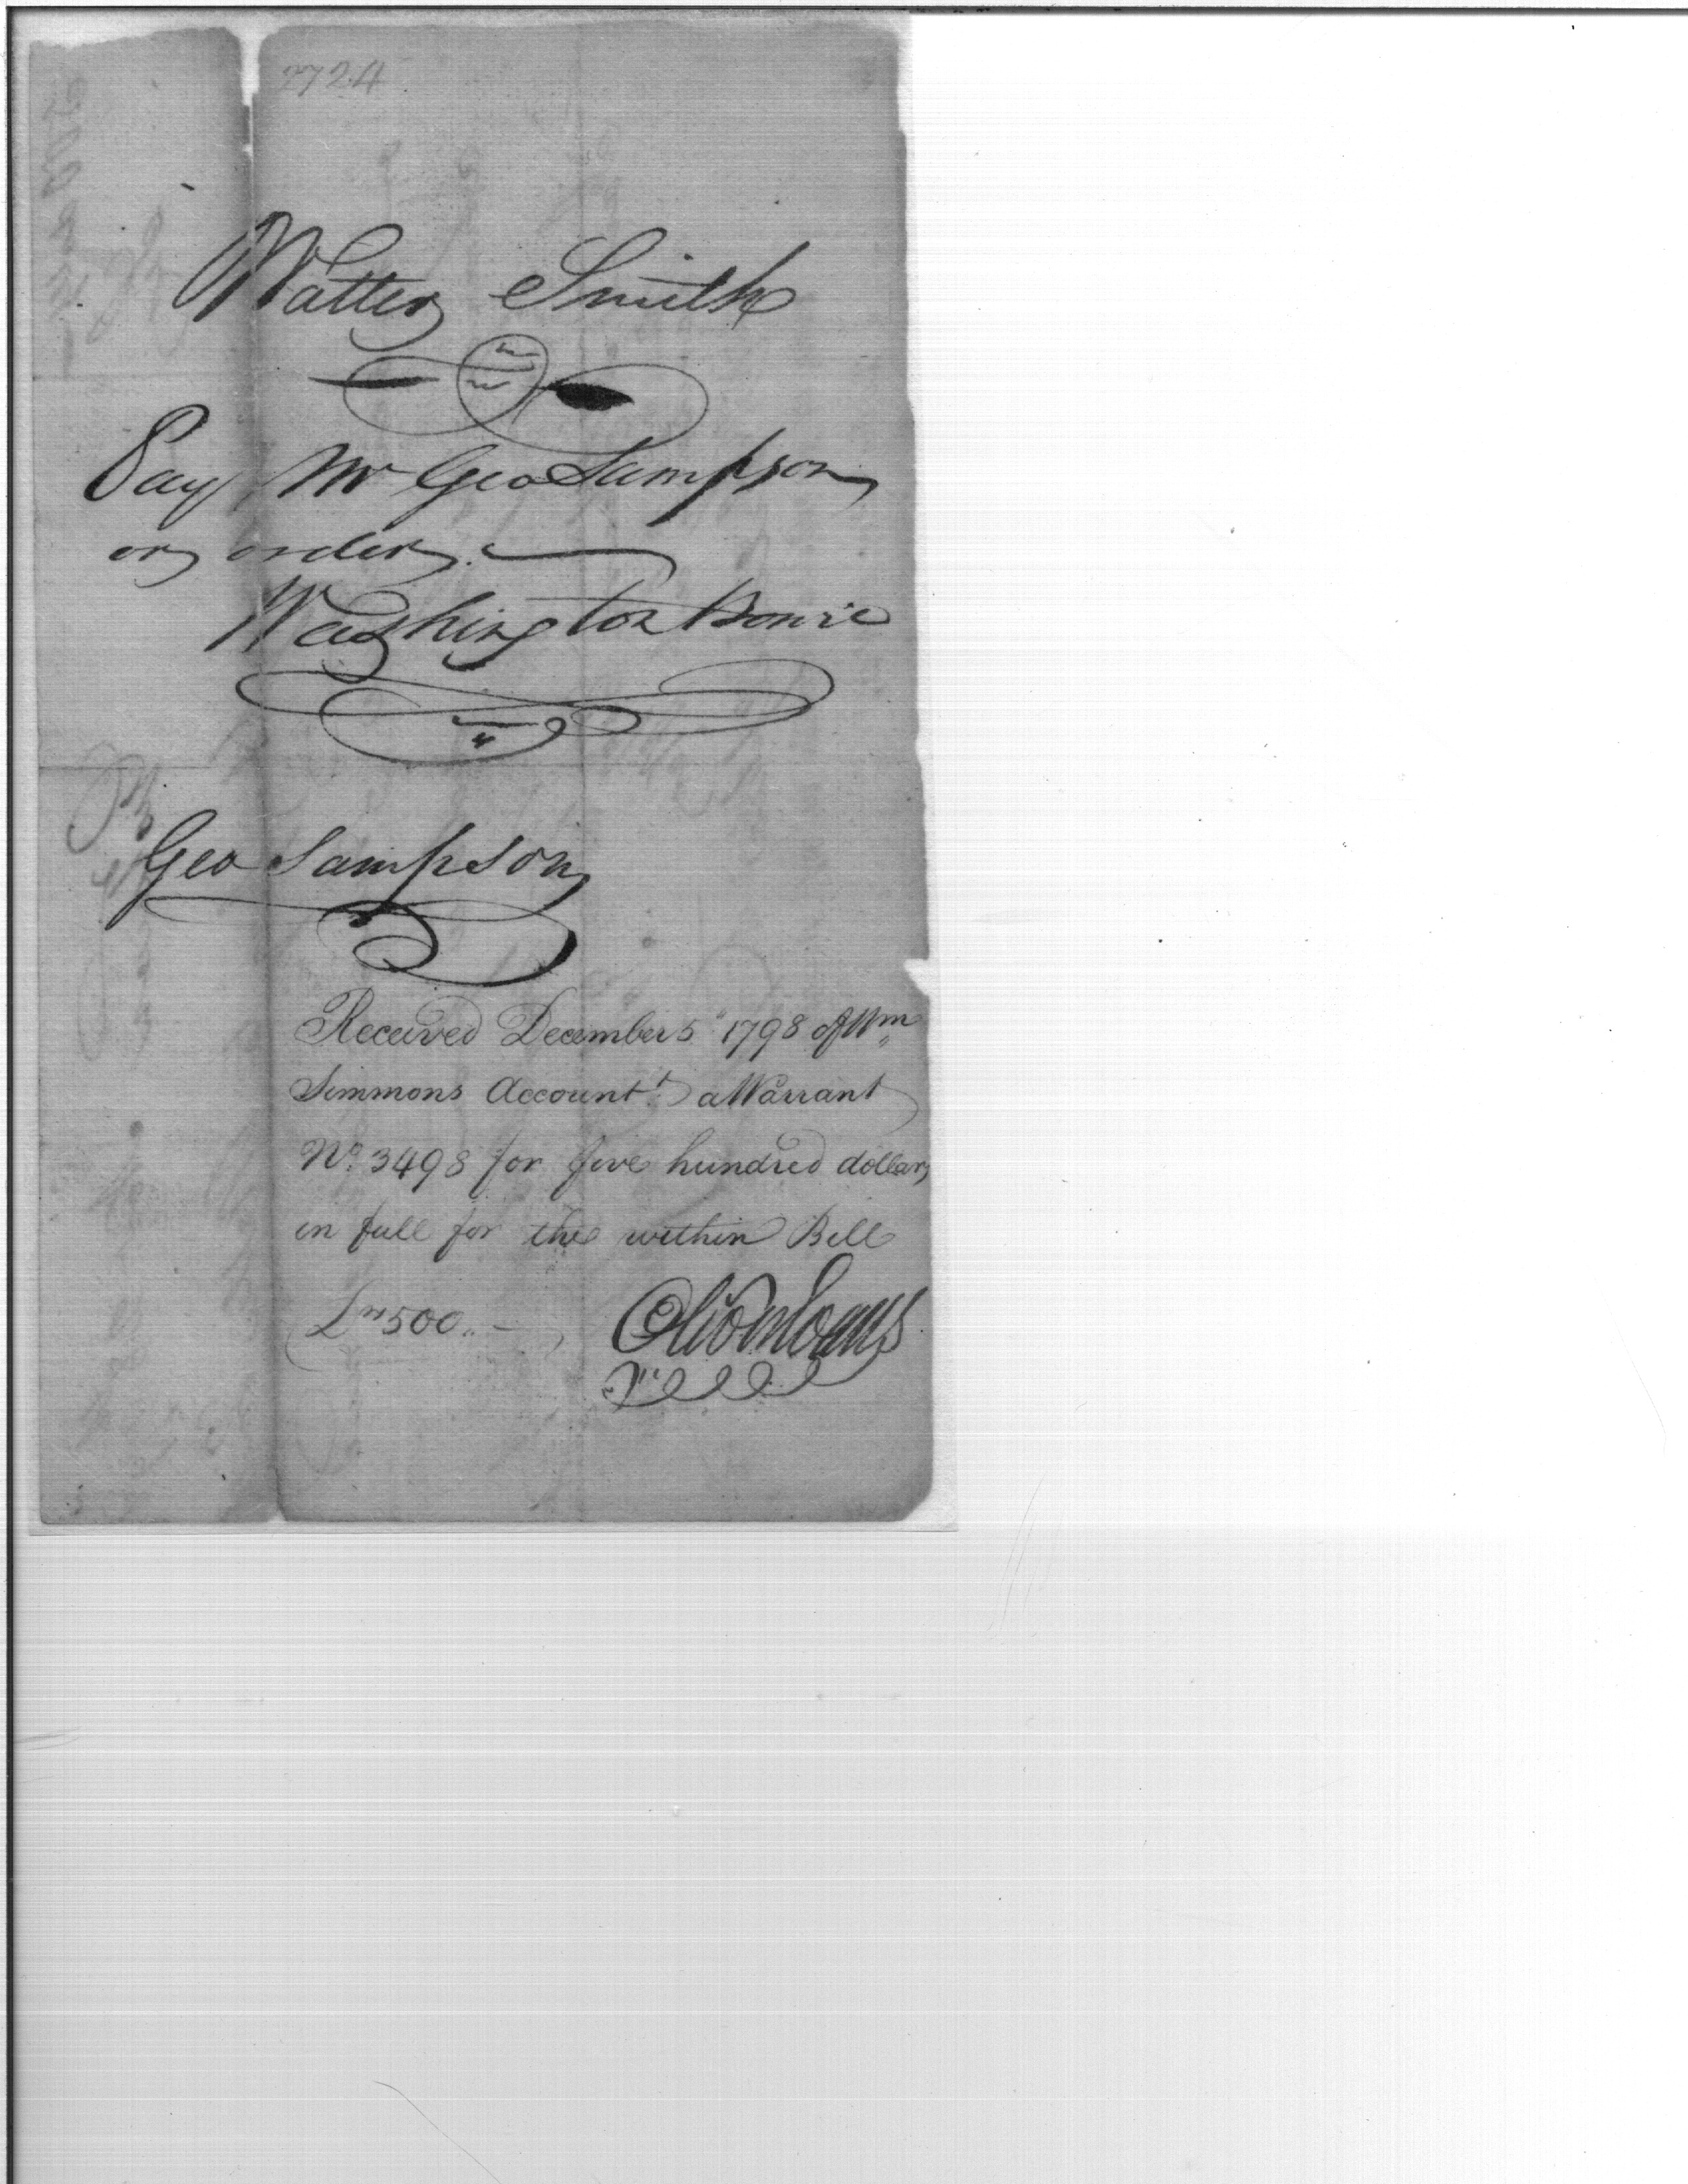 2724
Walter Smith
Pay Mr Geo Sampson
or order.
Washington Bowie
Geo Sampson
Received December 5 1798 of Wm
Simmons Accountt a Warrant
No 3498 for five hundred dollars
in full for the within Bill
500